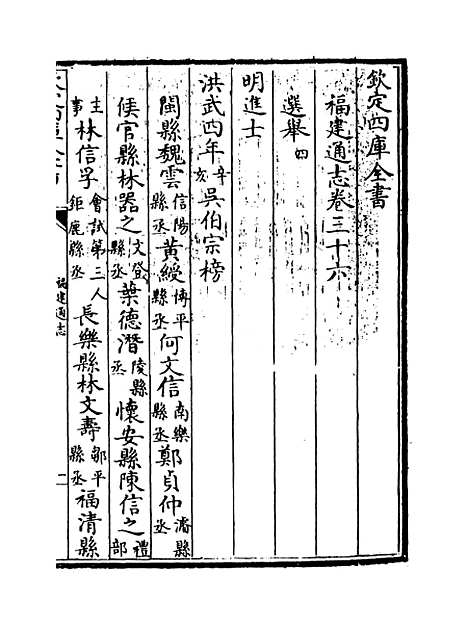 欽定四庫全書
福建通志卷三十六
選舉四
明進士
洪武四年辛亥吳伯宗榜
閩縣魏雲信陽縣丞黃綬博平縣丞何文信南樂縣丞鄭貞仲濬縣丞
侯官縣林器之文登縣丞葉德潛陵縣丞懷安縣陳信之禮部
主事林信孚會試第三人鉅鹿縣丞長樂縣林文壽鄒平縣丞福清縣
福建通志